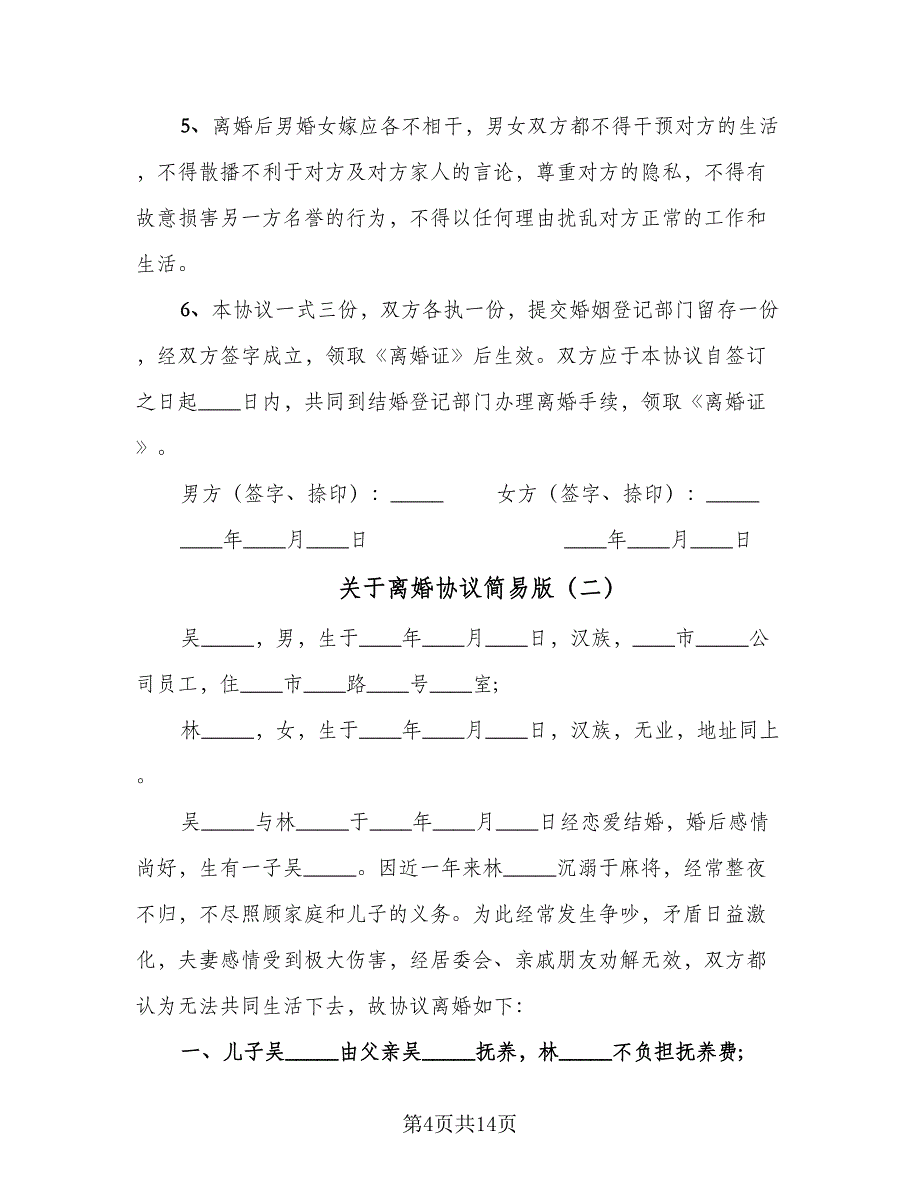 5、离婚后男婚女嫁应各不相干，男女双方都不得干预对方的生活
，不得散播不利于对方及对方家人的言论，尊重对方的隐私，不得有
故意损害另一方名誉的行为，不得以任何理由扰乱对方正常的工作和
生活。
6、本协议一式三份，双方各执一份，提交婚姻登记部门留存一份
，经双方签字成立，领取《离婚证》后生效。双方应于本协议自签订
之日起____日内，共同到结婚登记部门办理离婚手续，领取《离婚证
》。
男方（签字、捺印）：_____ 女方（签字、捺印）：_____
____年____月____日 ____年____月____日
关于离婚协议简易版（二）
吴_____，男，生于____年____月____日，汉族，____市_____公
司员工，住____市____路____号____室;
林_____，女，生于____年____月____日，汉族，无业，地址同上
。
吴_____与林_____于____年____月____日经恋爱结婚，婚后感情
尚好，生有一子吴_____。因近一年来林_____沉溺于麻将，经常整夜
不归，不尽照顾家庭和儿子的义务。为此经常发生争吵，矛盾日益激
化，夫妻感情受到极大伤害，经居委会、亲戚朋友劝解无效，双方都
认为无法共同生活下去，故协议离婚如下：
一、儿子吴_____由父亲吴_____抚养，林_____不负担抚养费;
第4页共14页